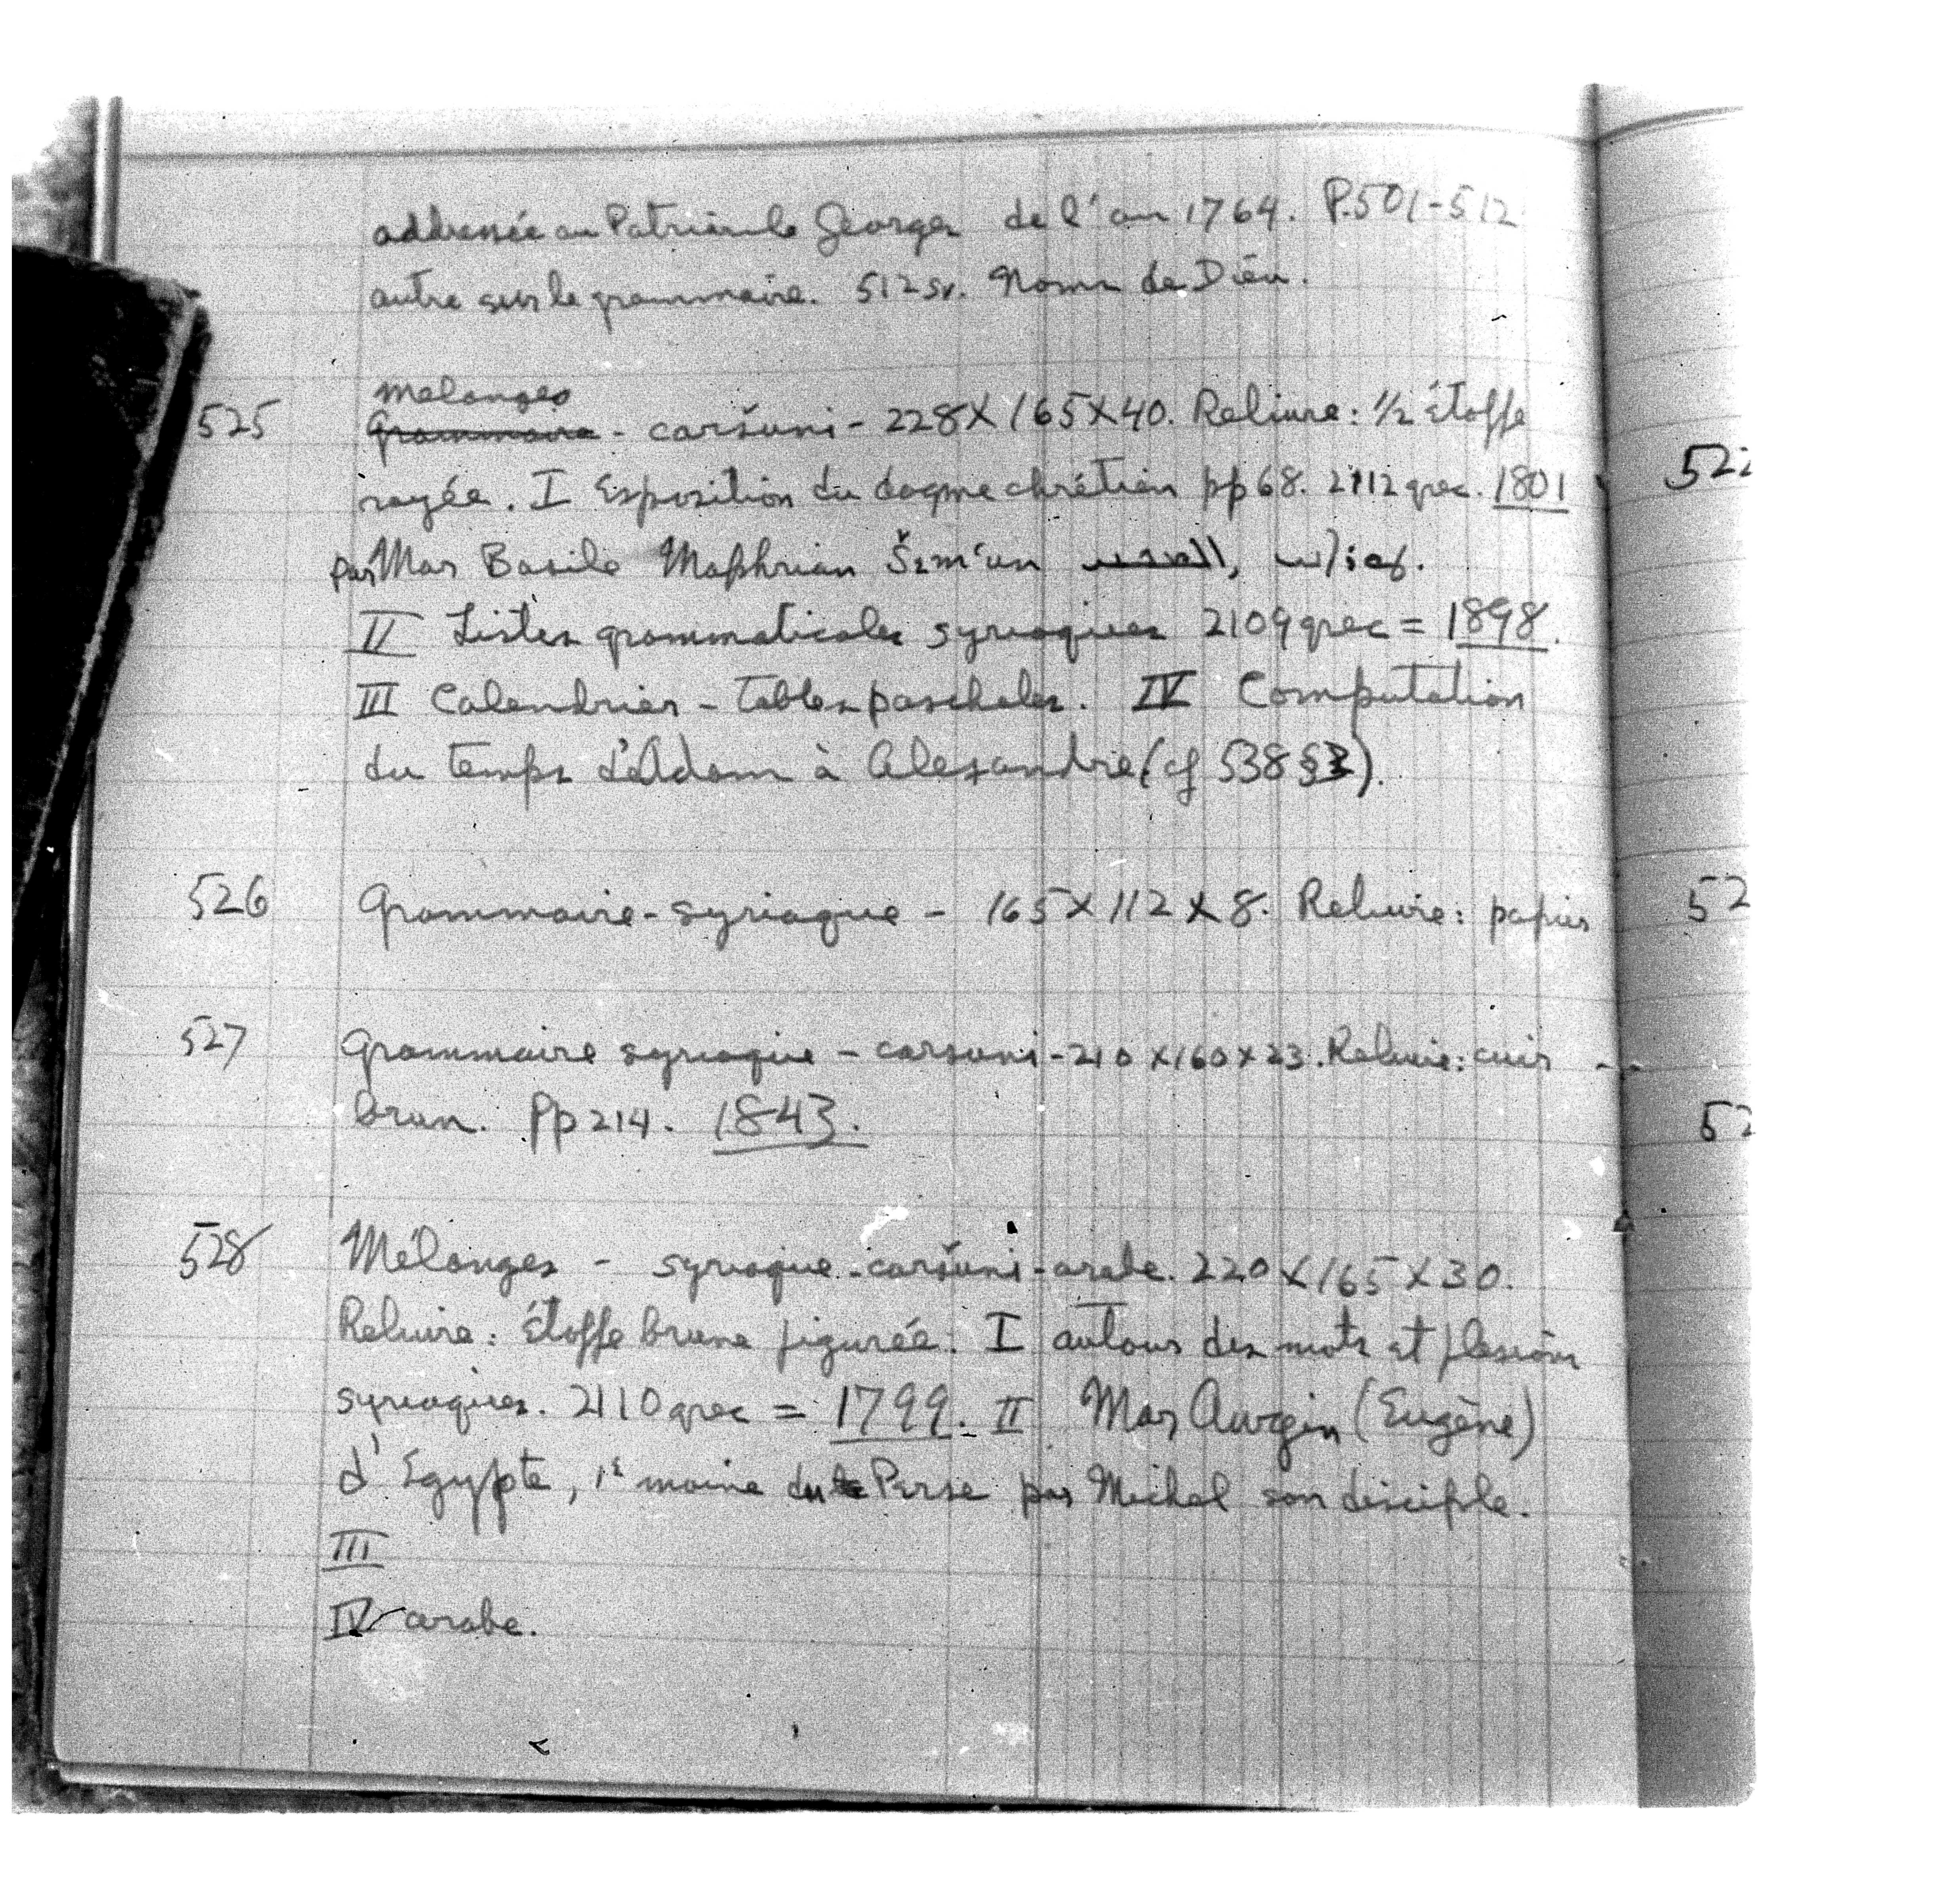 addressée au Patriarche Georges de l'an 1764. P.501-512
autre sur la grammaire. 512 sv. Noms de Dieu.
melanges
525 Grammaire - caršuni - 228X165X40. Reliure: 1/2 étoffe
rayée. I Exposition du dogme chrétien pp 68. 2112 grec. 1801
par Mar Basile Maphrian Šem'un
II Listes grammaticales syriaques 2109 grec = 1898.
III Calendrier - tables pascholes. IV Computation
du temps d'Adam à Alexandre (cf 538 §3).
526 Grammaire - syriaque - 165X112X8. Reliure: papier
527 Grammaire syriaque - carsuni - 210X160X23. Reliure: cuir
brun. Pp 214. 1843.
528 Mélanges - syriaque - caršuni - arabe. 220X165X30.
Reliure: étoffe brune figurée. I autour des mots et flexions
syriaques. 2110 grec = 1799. II Mar Awgin (Eugène)
d'Egypte, 1e moine de Perse par Michel son disciple.
III
IV arabe.
52
52
52